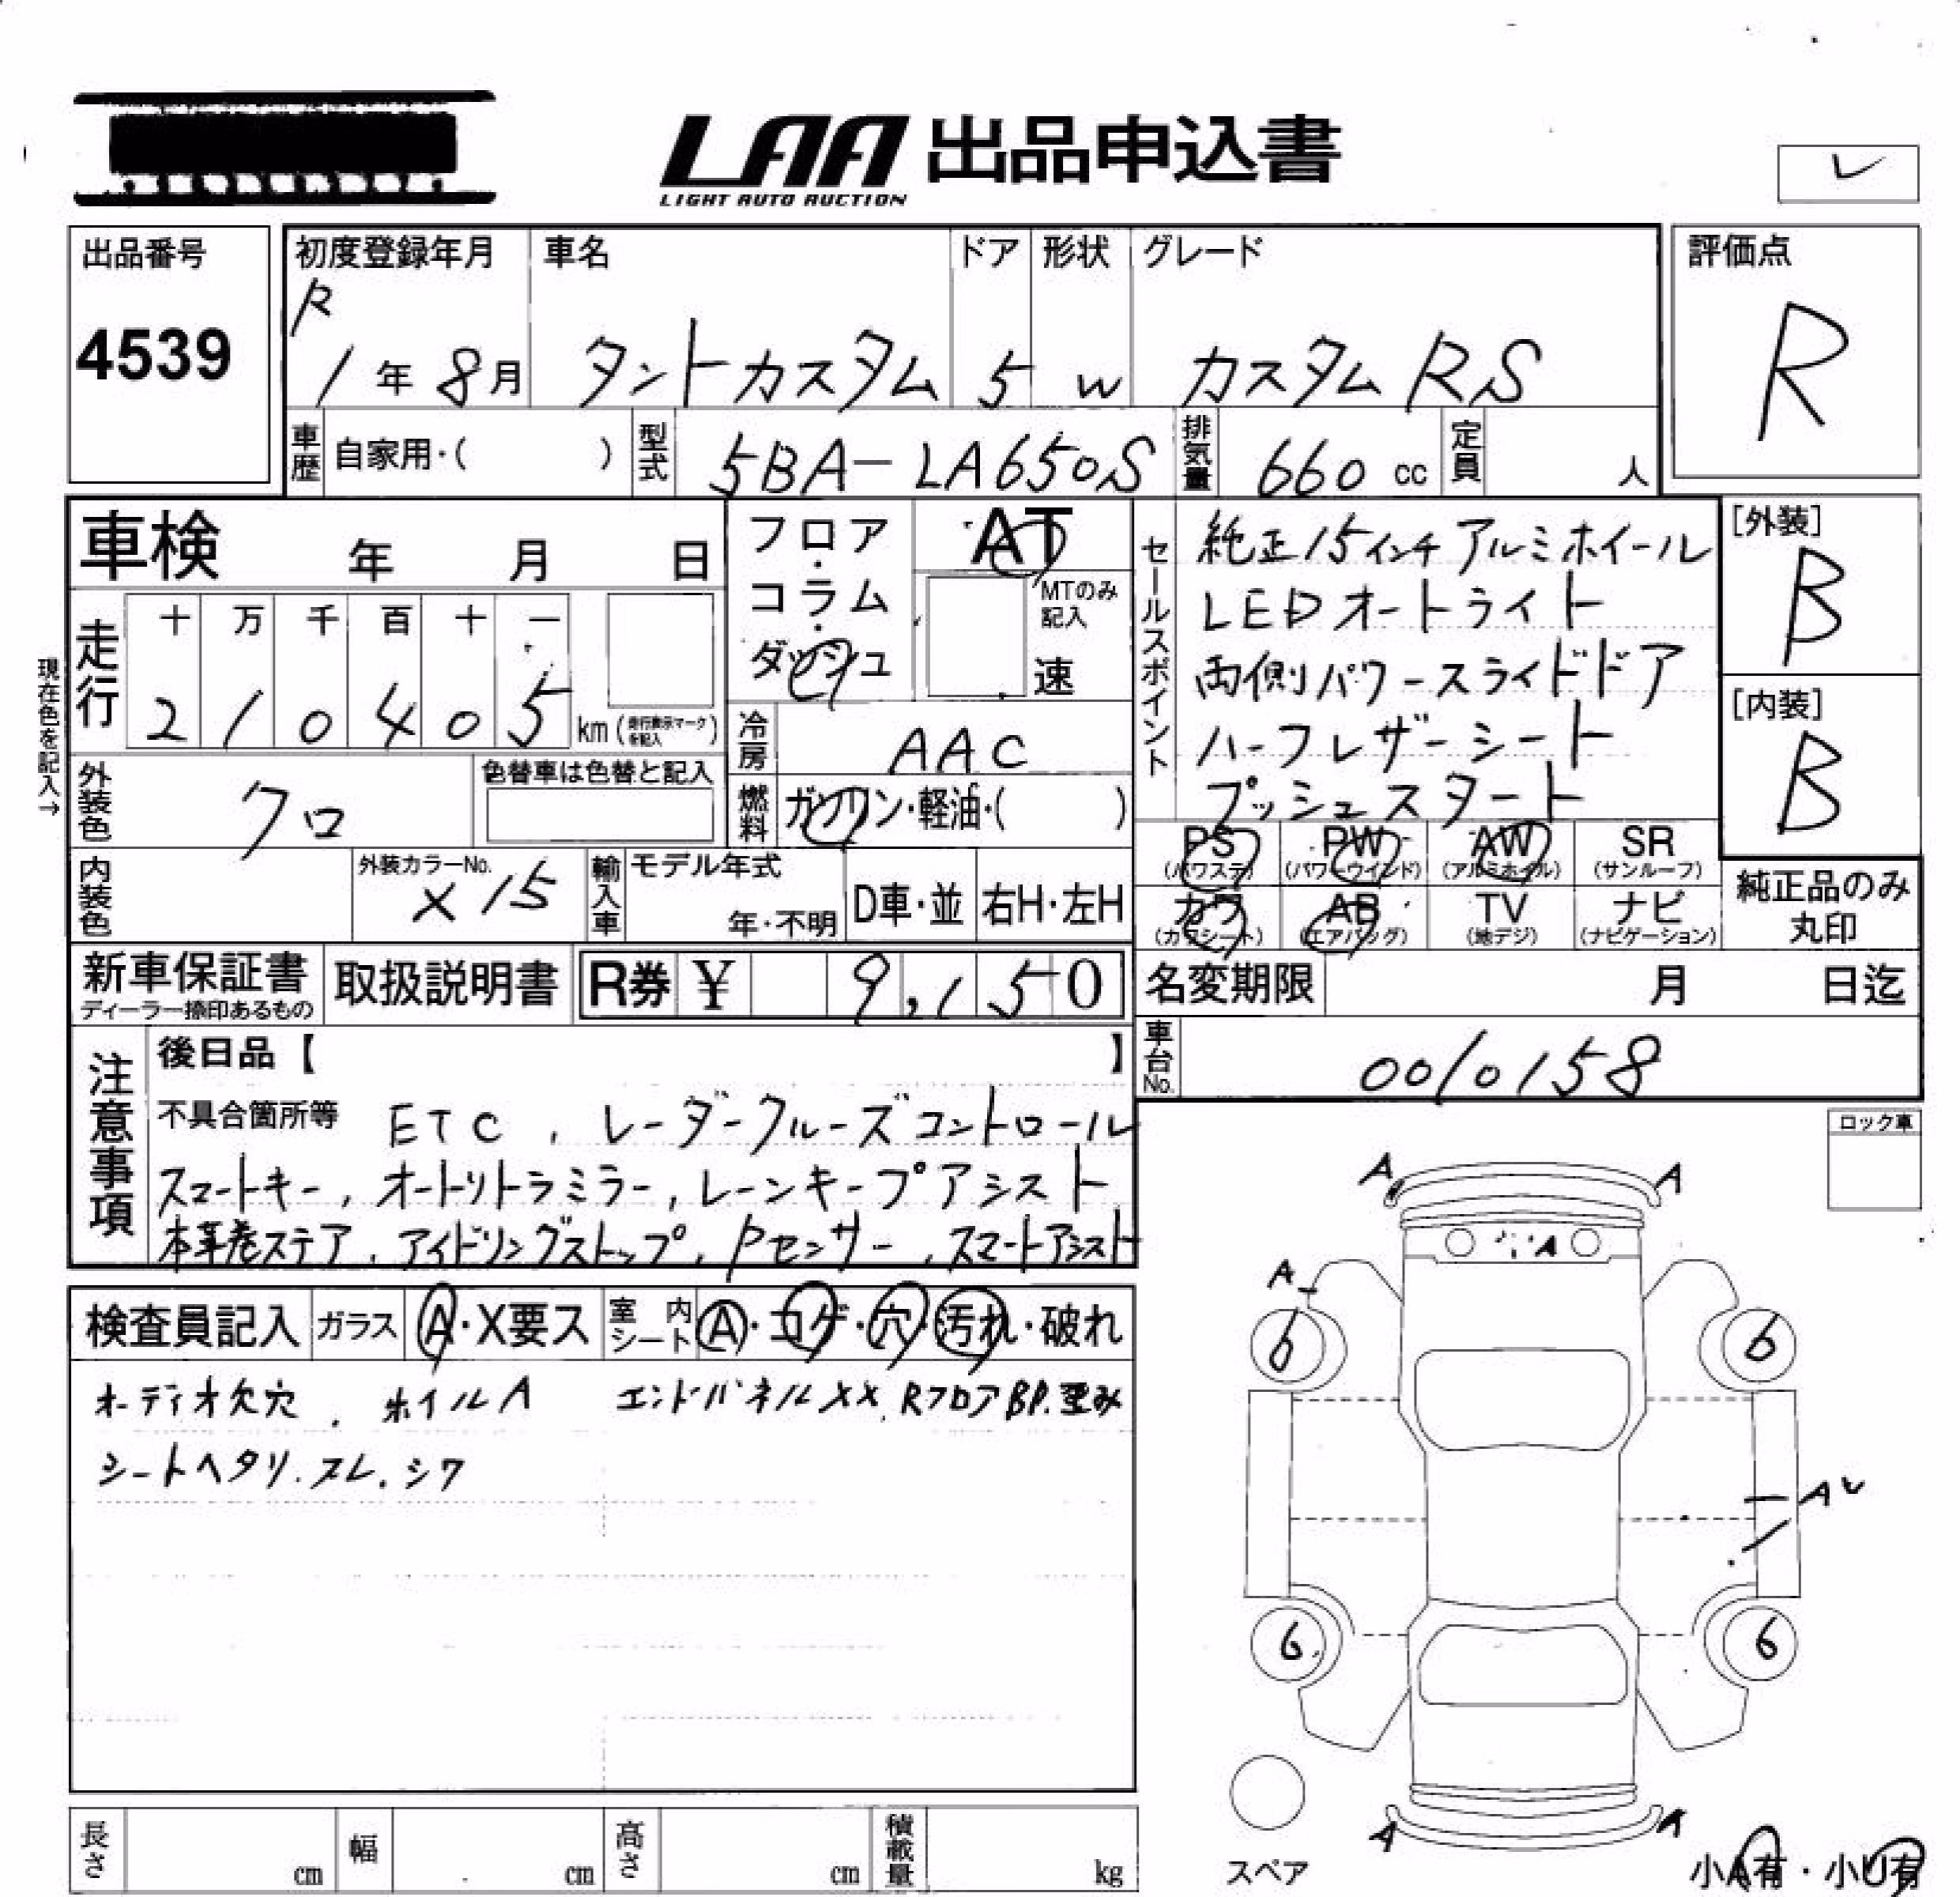 LAA 出品申込書
LIGHT AUTO AUCTION
レ
出品番号
4539
初度登録年月
R
1年 8月
車名
タントカスタム
ドア
5
形状
W
グレード
カスタム RS
評価点
R
車歴 自家用・( )
型式 5BA-LA650S
排気量 660 cc
定員 人
車検 年 月 日
フロア・コラム・ダッシュ
AT
MTのみ記入
速
走行
十 万 千 百 十 一
2 1 0 4 0 5 km (走行表示マークを記入)
現在色を記入→
外装色 クロ
色替車は色替と記入
冷房 AAC
燃料 ガソリン・軽油・( )
内装色
外装カラーNo.
X15
輸入車
モデル年式
年・不明
D車・並
右H・左H
セールスポイント
純正15インチアルミホイール
LEDオートライト
両側パワースライドドア
ハーフレザーシート
プッシュスタート
[外装]
B
[内装]
B
PS (パワステ)
PW (パワーウインド)
AW (アルミホイル)
SR (サンルーフ)
カワ (カワシート)
AB (エアバッグ)
TV (地デジ)
ナビ (ナビゲーション)
純正品のみ
丸印
新車保証書
ディーラー捺印あるもの
取扱説明書
R券 ¥ 9,150
名変期限 月 日迄
車台No. 0010158
注意事項
後日品【 】
不具合箇所等 ETC, レーダークルーズコントロール
スマートキー, オートリトラミラー, レーンキープアシスト
本革巻ステア, アイドリングストップ, Pセンサー, スマートアシスト
ロック車
検査員記入
ガラス A・X要ス
室内シート A・コゲ・穴・汚れ・破れ
オーディオ欠穴. ホイルA エンドパネルXX. RフロアBP.歪み
シートヘタリ.スレ.シワ
A A
A
A
6 6
A
6 6
A A
スペア
小A有・小U有
長さ cm
幅 cm
高さ cm
積載量 kg